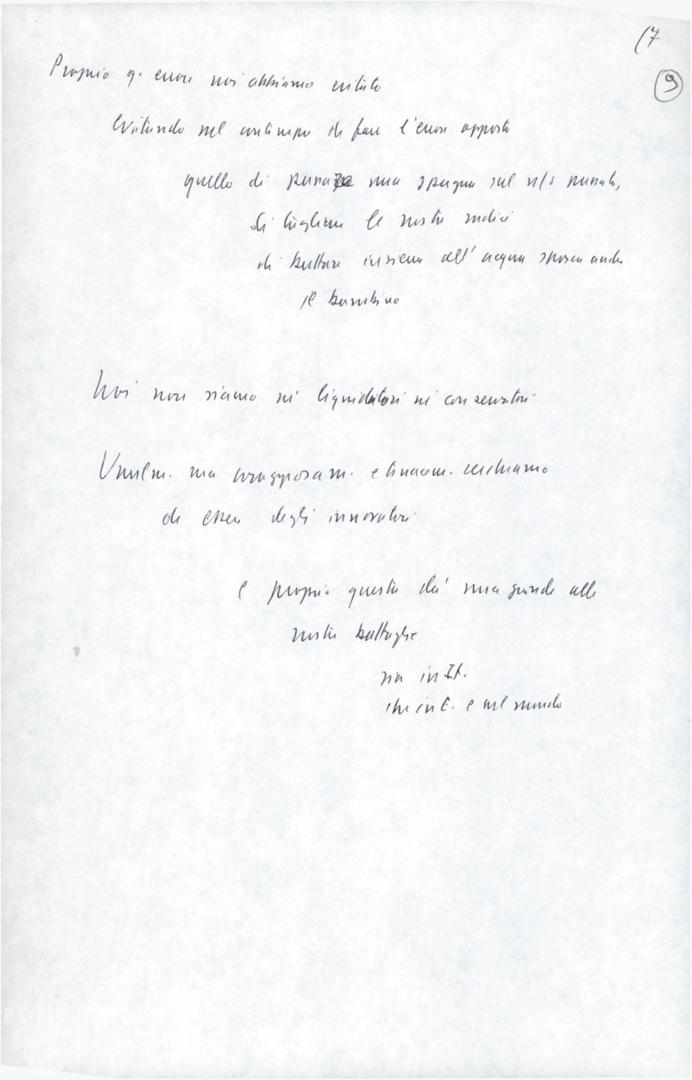 17
9
Proprio q. errore noi abbiamo evitato
Evitando nel contempo di fare l'errore opposto
quello di passare una spugna sul n/s passato,
di tagliare le nostre radici
di buttare insieme all'acqua sporca anche
il bambino
Noi non siamo né liquidatori né conservatori
Umilm. ma coraggiosam. e tenacem. cerchiamo
di essere degli innovatori
E proprio questo dà una grande alle
nostre battaglie
sia in It.
che in E. e nel mondo